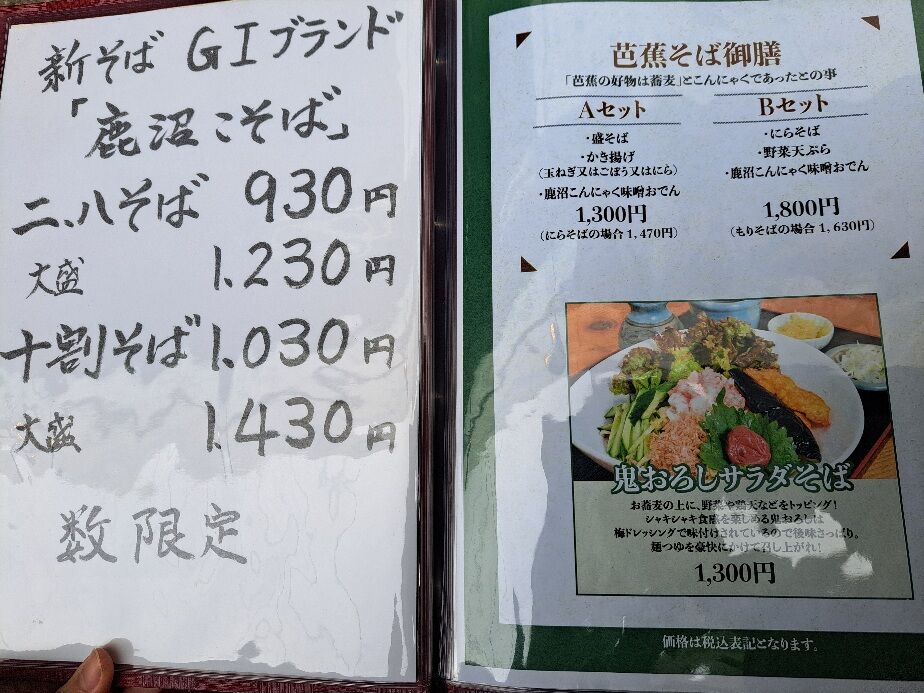 新そば GIブランド
「鹿沼こそば」
二、八そば 930円
大盛 1.230円
十割そば 1.030円
大盛 1.430円
数限定
芭蕉そば御膳
「芭蕉の好物は蕎麦」とこんにゃくであったとの事
Aセット
・盛そば
・かき揚げ
(玉ねぎ又はごぼう又はにら)
・鹿沼こんにゃく味噌おでん
1,300円
(にらそばの場合 1,470円)
Bセット
・にらそば
・野菜天ぷら
・鹿沼こんにゃく味噌おでん
1,800円
(もりそばの場合 1,630円)
鬼おろしサラダそば
お蕎麦の上に、野菜や鶏天などをトッピング!
シャキシャキ食感を楽しめる鬼おろしは
梅ドレッシングで味付けされているので後味さっぱり。
麺つゆを豪快にかけて召し上がれ!
1,300円
価格は税込表記となります。